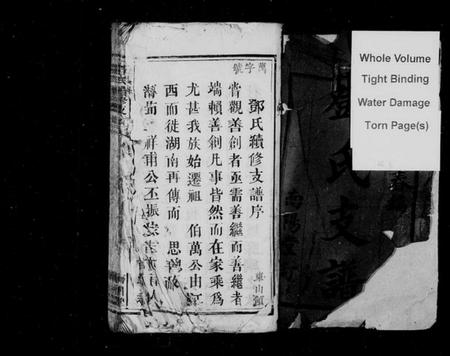 Whole Volume
Tight Binding
Water Damage
Torn Page(s)
鄧氏支譜
南陽堂
萬字號
鄧氏續修支譜序
嘗觀善創者亟需善繼而善繼者
端賴善創凡事皆然而在家乘爲
尤甚我族始遷祖 伯萬公由江
西而徙湖南再傳而 思
祥甫公丕振